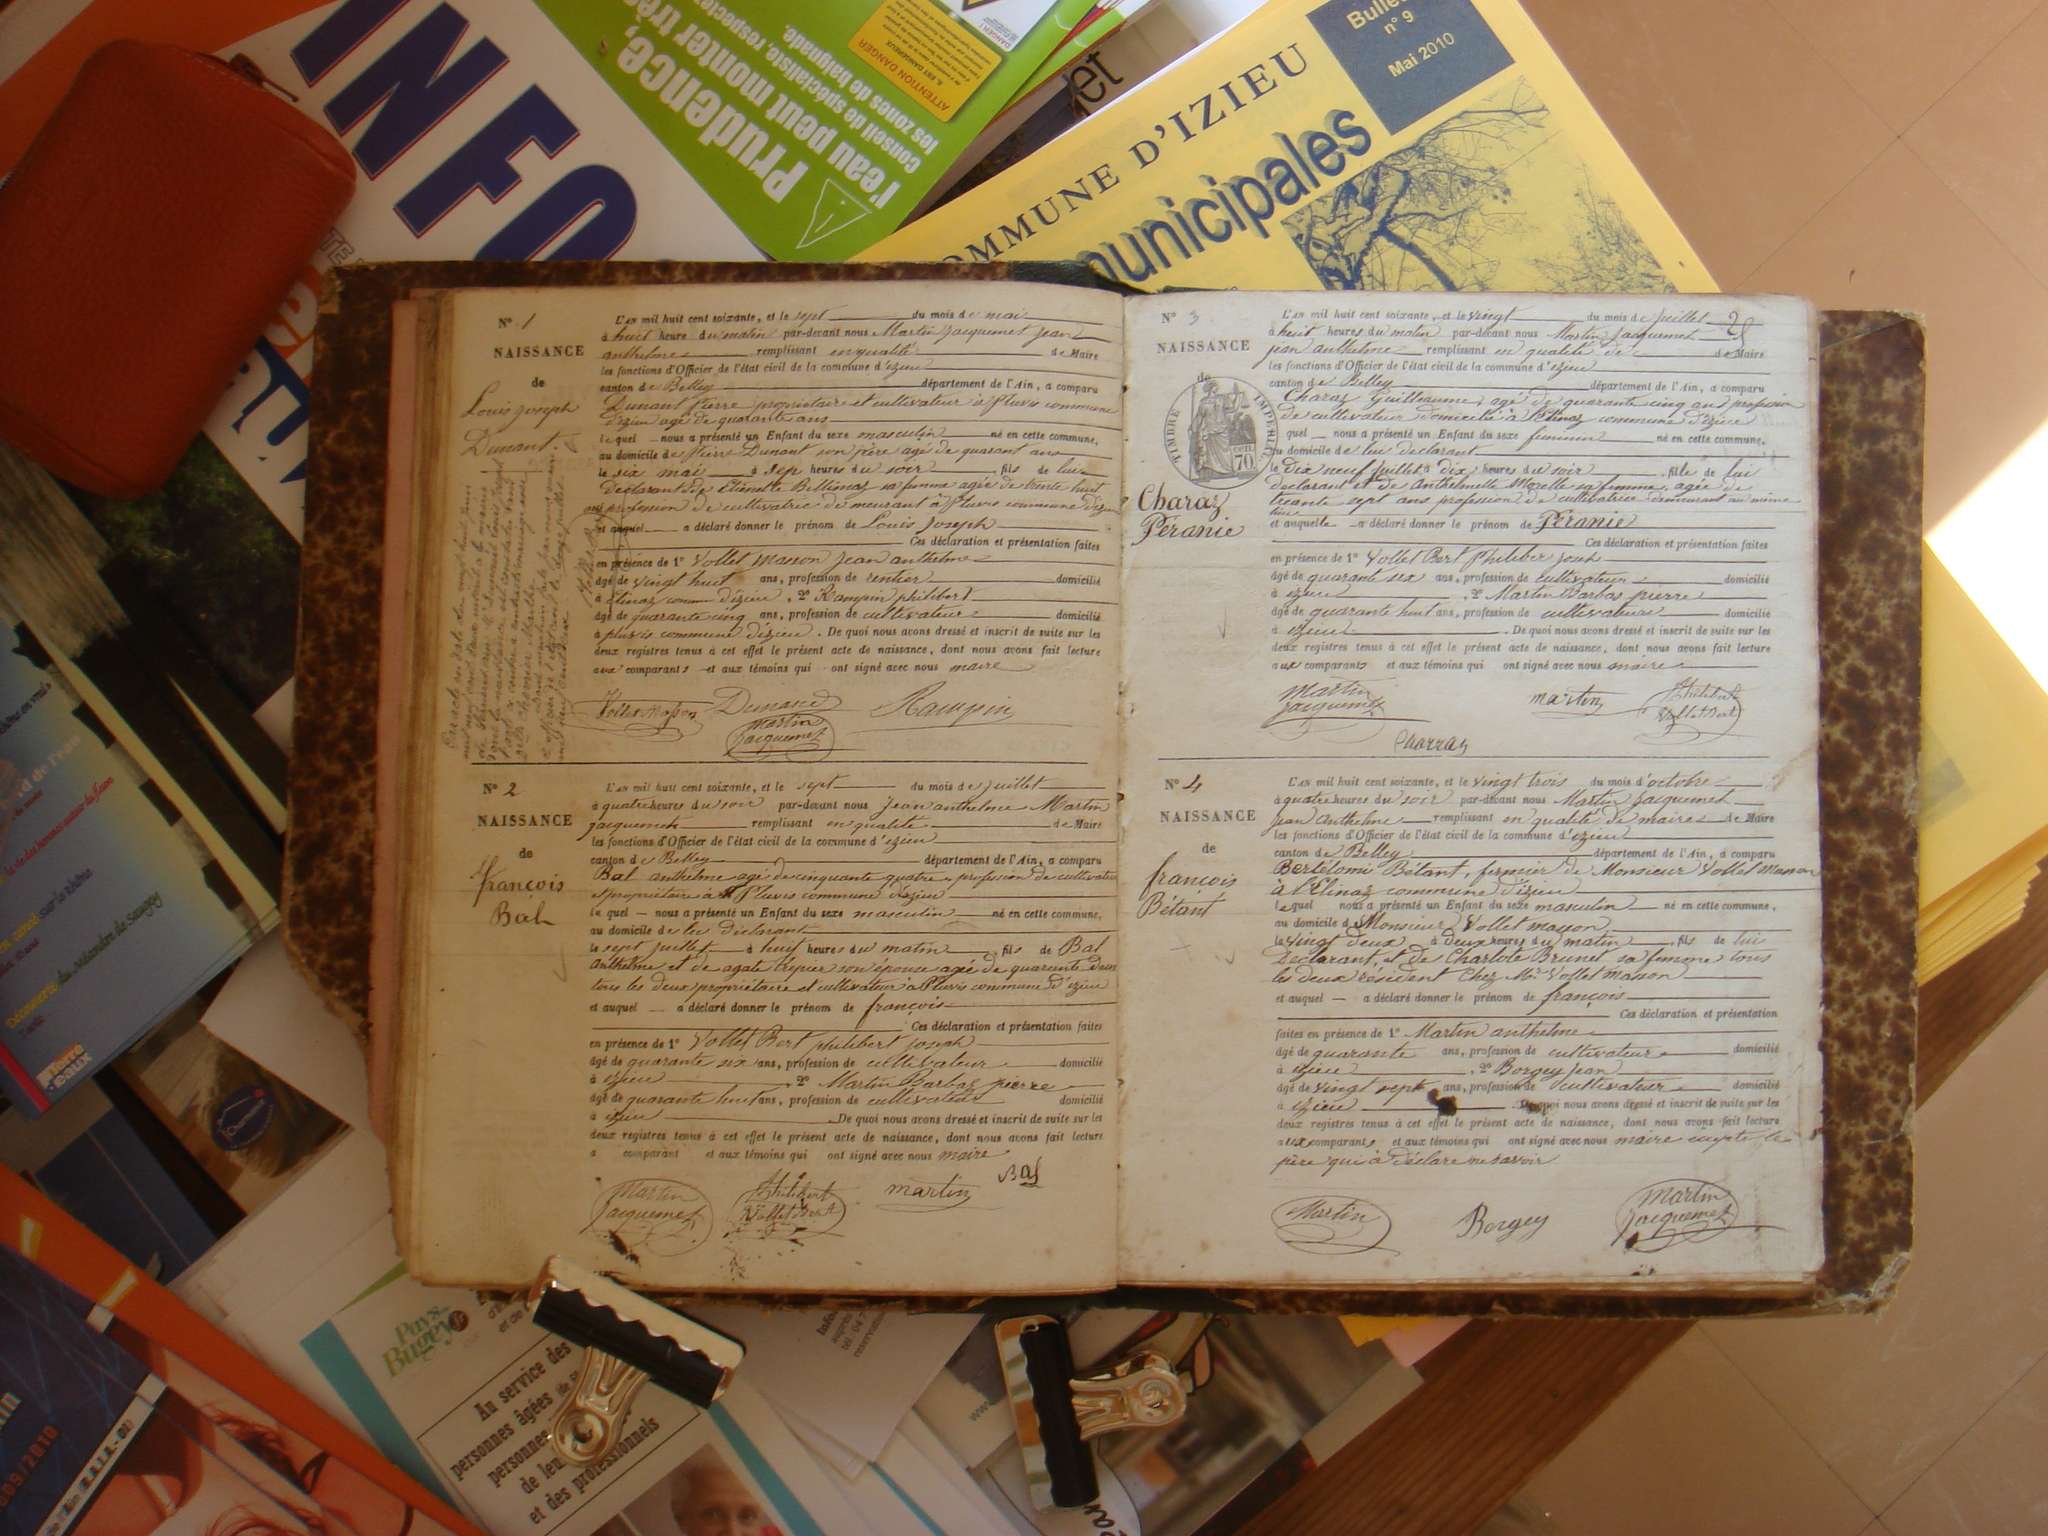 INFO
Prudence,
l'eau peut monter très
conseil de spécialiste, respectez
les zones de baignade.
ATTENTION DANGER
COMMUNE D'IZIEU
municipales
Bulletin
n° 9
Mai 2010
N° 1
NAISSANCE
de
Louis Joseph
Dunant.
L'AN mil huit cent soixante, et le sept du mois de mai
à huit heure du matin par-devant nous Martin Jacquemet Jean
anthelme remplissant en qualité de Maire
les fonctions d'Officier de l'état civil de la commune d'izieu
canton de Belley département de l'Ain, a comparu
Dunant Pierre propriétaire et cultivateur à Pluvis commune
d'izieu agé de quarante ans
lequel nous a présenté un Enfant du sexe masculin né en cette commune,
au domicile de Pierre Dunant son père agé de quarant ans
le six mai à sep heures du soir , fils de lui
déclarant & de Etiennette Bellimaz sa femme agée de trente huit
ans profession de cultivatric de meurant à Pluvis commune d'izieu
et auquel a déclaré donner le prénom de Louis Joseph
Ces déclaration et présentation faites
en présence de 1° Vollet Masson Jean anthelme
âgé de vingt huit ans, profession de rentier domicilié
à Elinaz comm d'izieu , 2° Rampin philibert
âgé de quarante cinq ans, profession de cultivateur domicilié
à pluvis commune d'izieu . De quoi nous avons dressé et inscrit de suite sur les
deux registres tenus à cet effet le présent acte de naissance, dont nous avons fait lecture
aux comparants et aux témoins qui ont signé avec nous maire
Vollet Masson Dunand Rampin
Martin
Jacquemet
N° 2
NAISSANCE
de
françois
Bal
L'AN mil huit cent soixante, et le sept du mois de juillet
à quatre heures du soir par-devant nous Jean anthelme Martin
Jacquemet remplissant en qualité de Maire
les fonctions d'Officier de l'état civil de la commune d'izieu
canton de Belley département de l'Ain, a comparu
Bal anthelme agé de cinquante quatre profession de cultivateur
et propriétaire à Pluvis commune d'izieu
lequel nous a présenté un Enfant du sexe masculin né en cette commune,
au domicile de lui déclarant
le sept juillet à huit heures du matin , fils de Bal
Anthelme et de agate trépier son épouse agée de quarante deux
tous les deux propriétaire et cultivateur à Pluvis commune d'izieu
et auquel a déclaré donner le prénom de françois
Ces déclaration et présentation faites
en présence de 1° Vollet Bert philibert joseph
âgé de quarante six ans, profession de cultivateur domicilié
à izieu , 2° Martin Barbaz pierre
âgé de quarante huit ans, profession de cultivateur domicilié
à izieu De quoi nous avons dressé et inscrit de suite sur les
deux registres tenus à cet effet le présent acte de naissance, dont nous avons fait lecture
a comparant et aux témoins qui ont signé avec nous maire
Martin Philibert martin Bal
Jacquemet Vollet Bert
N° 3
NAISSANCE
de
TIMBRE IMPERIAL
70
Charaz
Péranie
L'AN mil huit cent soixante, et le vingt du mois de juillet
à huit heures du matin par-devant nous Martin Jacquemet
jean anthelme remplissant en qualité de de Maire
les fonctions d'Officier de l'état civil de la commune d'izieu
canton de Belley département de l'Ain, a comparu
Charaz Guilleaume, agé de quarante cinq ans profession
de cultivateur domicilié à l'Elinaz commune d'izieu
quel nous a présenté un Enfant du sexe feminin né en cette commune,
au domicile de lui déclarant
le Dix neuf juillet à dix heures du soir , fille de lui
déclarant et de Anthelmette Mozelle sa femme, agée de
trante sept ans profession de cultivatrice demeurant au même
lieu
et auquelle a déclaré donner le prénom de Péranie
Ces déclaration et présentation faites
en présence de 1° Vollet Bert Philiber josph
âgé de quarante sex ans, profession de cultivateur domicilié
à izieu , 2° Martin Barbas pierre
âgé de quarante huit ans, profession de cultivateur domicilié
à izieu . De quoi nous avons dressé et inscrit de suite sur les
deux registres tenus à cet effet le présent acte de naissance, dont nous avons fait lecture
aux comparants et aux témoins qui ont signé avec nous maire
Martin martin Philibert
Jacquemet Vollet Bert
Charraz
N° 4
NAISSANCE
de
françois
Bétant
L'AN mil huit cent soixante, et le vingt trois du mois d'octobre
à quatre heures du soir par-devant nous Martin Jacquemet
Jean Anthelme remplissant en qualité de maires de Maire
les fonctions d'Officier de l'état civil de la commune d'izieu
canton de Belley département de l'Ain, a comparu
Bertélomi Bétant, fermier de Monsieur Vollet Masson
à l'Elinaz commune d'izieu
lequel nous a présenté un Enfant du sexe masculin né en cette commune,
au domicile de Monsieur Vollet masson
le vingt deux à deux heures du matin , fils de lui
Déclarant, et de Charlote Brunet sa femme tous
les deux résident chez Mr Vollet Masson
et auquel a déclaré donner le prénom de françois
Ces déclaration et présentation
faites en présence de 1° Martin anthelme
âgé de quarante ans, profession de cultivateur domicilié
à izieu , 2° Borgey Jean
âgé de vingt sept ans, profession de cultivateur domicilié
à izieu De quoi nous avons dressé et inscrit de suite sur les
deux registres tenus à cet effet le présent acte de naissance, dont nous avons fait lecture
aux comparants et aux témoins qui ont signé avec nous maire exepté le
père qui à déclaré ne savoir
Martin Borgey Martin
Jacquemet
Découverte du méandre de sangoy
Terre
d'eaux
Pays
Bugey
Au service des
personnes âgées
personnes
de leu
et des professionnels
09/2010